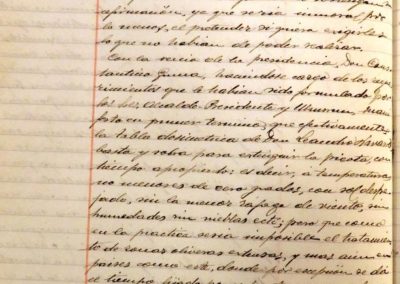 afirmación, ya que seria inmoral, por
lo menos, el pretender siquiera exigirles
lo que no habian de poder realizar.
Con la venia de la presidencia, Don Cons
tantino Gruna, haciendose cargo de los reque
rimientos que le habian sido formulado por
los Sres. Alcalde Presidente y mani
festo en primer termino, que efectivamente,
la tabla dosimetrica de Don Leandro Navarro
basta y sobra para extinguir la piesta, con
tiempo apropiado: es decir, a temperatura
no menores de cero grados, con sol despe
jado, sin la menor rafaga de viento, sin
humedades sin nieblas ectª; pero que como
en la practica seria imposible el tratamien
to de zonas oliveras extensas, y mas aun en
paises como este, donde por excepción se dá
el tiempo fijado